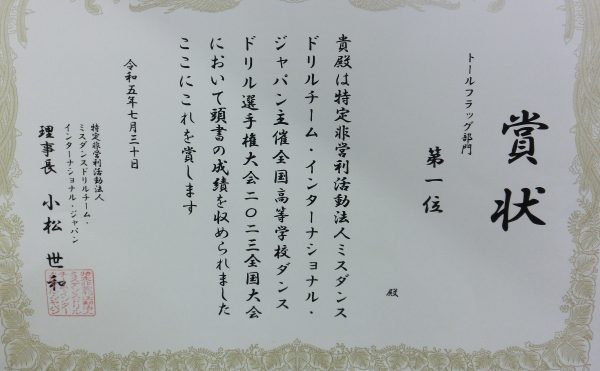 賞状
トールフラッグ部門
第一位
殿
貴殿は特定非営利活動法人ミスダンス
ドリルチーム・インターナショナル・
ジャパン主催全国高等学校ダンス
ドリル選手権大会二〇二三全国大会
において頭書の成績を収められました
ここにこれを賞します
令和五年七月三十日
特定非営利活動法人
ミスダンスドリルチーム・
インターナショナル・ジャパン
理事長 小松 世和